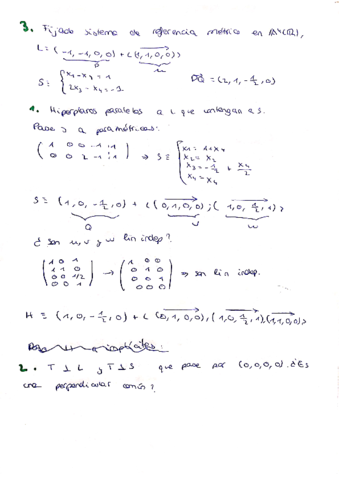 3. Fijado sistema de referencia métrico en A⁴(ℝ),
L = (-1, -1, 0, 0) + L(1, 1, 0, 0)>
P u
S ≡ { x₁ - x₄ = 1
2x₃ - x₄ = -1
PQ = (2, 1, -1/2, 0)
1. Hiperplanos paralelos a L que contengan a S.
Paso S a paramétricas:
( 1 0 0 -1 : 1
0 0 2 -1 : -1 ) → S ≡ { x₁ = 1 + x₄
x₂ = x₂
x₃ = -1/2 + x₄/2
x₄ = x₄
S = (1, 0, -1/2, 0) + L(0, 1, 0, 0), (1, 0, 1/2, 1)>
Q v w
¿ son u, v y w lin indep?
( 1 0 1
1 1 0
0 0 1/2
0 0 1 ) → ( 1 0 0
0 1 0
0 0 1
0 0 0 ) → son lin indep.
H ≡ (1, 0, -1/2, 0) + L(0, 1, 0, 0), (1, 0, 1/2, 1), (1, 1, 0, 0)>
2. T ⊥ L y T ⊥ S que pase por (0, 0, 0, 0). ¿Es
una perpendicular común?